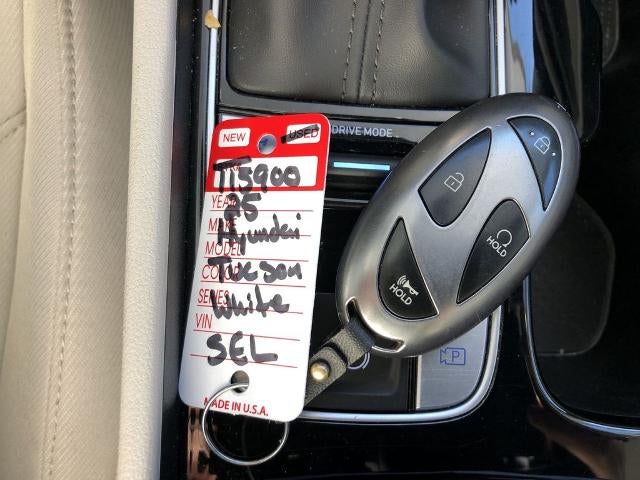 DRIVE MODE
NEW USED
T15900
YEAR 25
MAKE Hyundai
MODEL Tucson
COLOR White
SERIES SEL
VIN
MADE IN U.S.A.
HOLD
HOLD
P